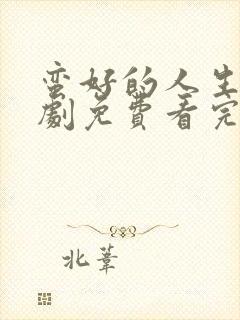 蛮好的人生
劇免費看完
北葦